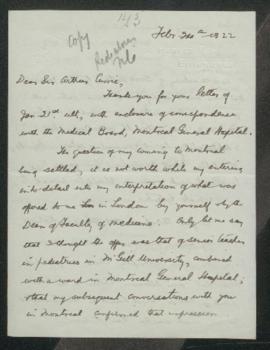 Copy
Feb. 1922
Dear Sir Arthur Currie,
Thank you for your letter of
Jan 21st ult, with enclosure of correspondence
with the Medical Board, Montreal General Hospital.
The question of my coming to Montreal
being settled, it is not worth while my entering
into detail into my interpretation of what was
offered to me in London by yourself & the
Dean of Faculty of Medicine. Only let me say
that I thought the offer was that of senior teacher
in pediatrics in McGill University, combined
with a ward in Montreal General Hospital;
that my subsequent conversations with you
in Montreal confirmed that impression